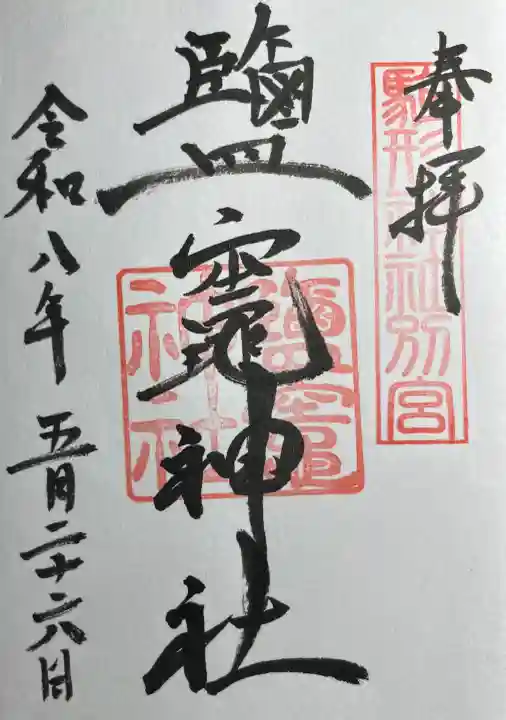 奉拝
駒形神社別宮
鹽竈神社
鹽竈神社
令和八年五月二十六日